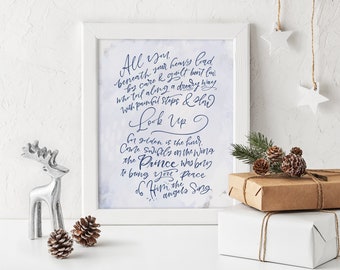 All You
beneath your heavy load
by care & guilt bent low
who toil along a dreary way
with painful steps & slow
Look Up
for golden is the hour
Come swiftly on the wing
the Prince was born
to bring you peace
of Him the
angels Sing